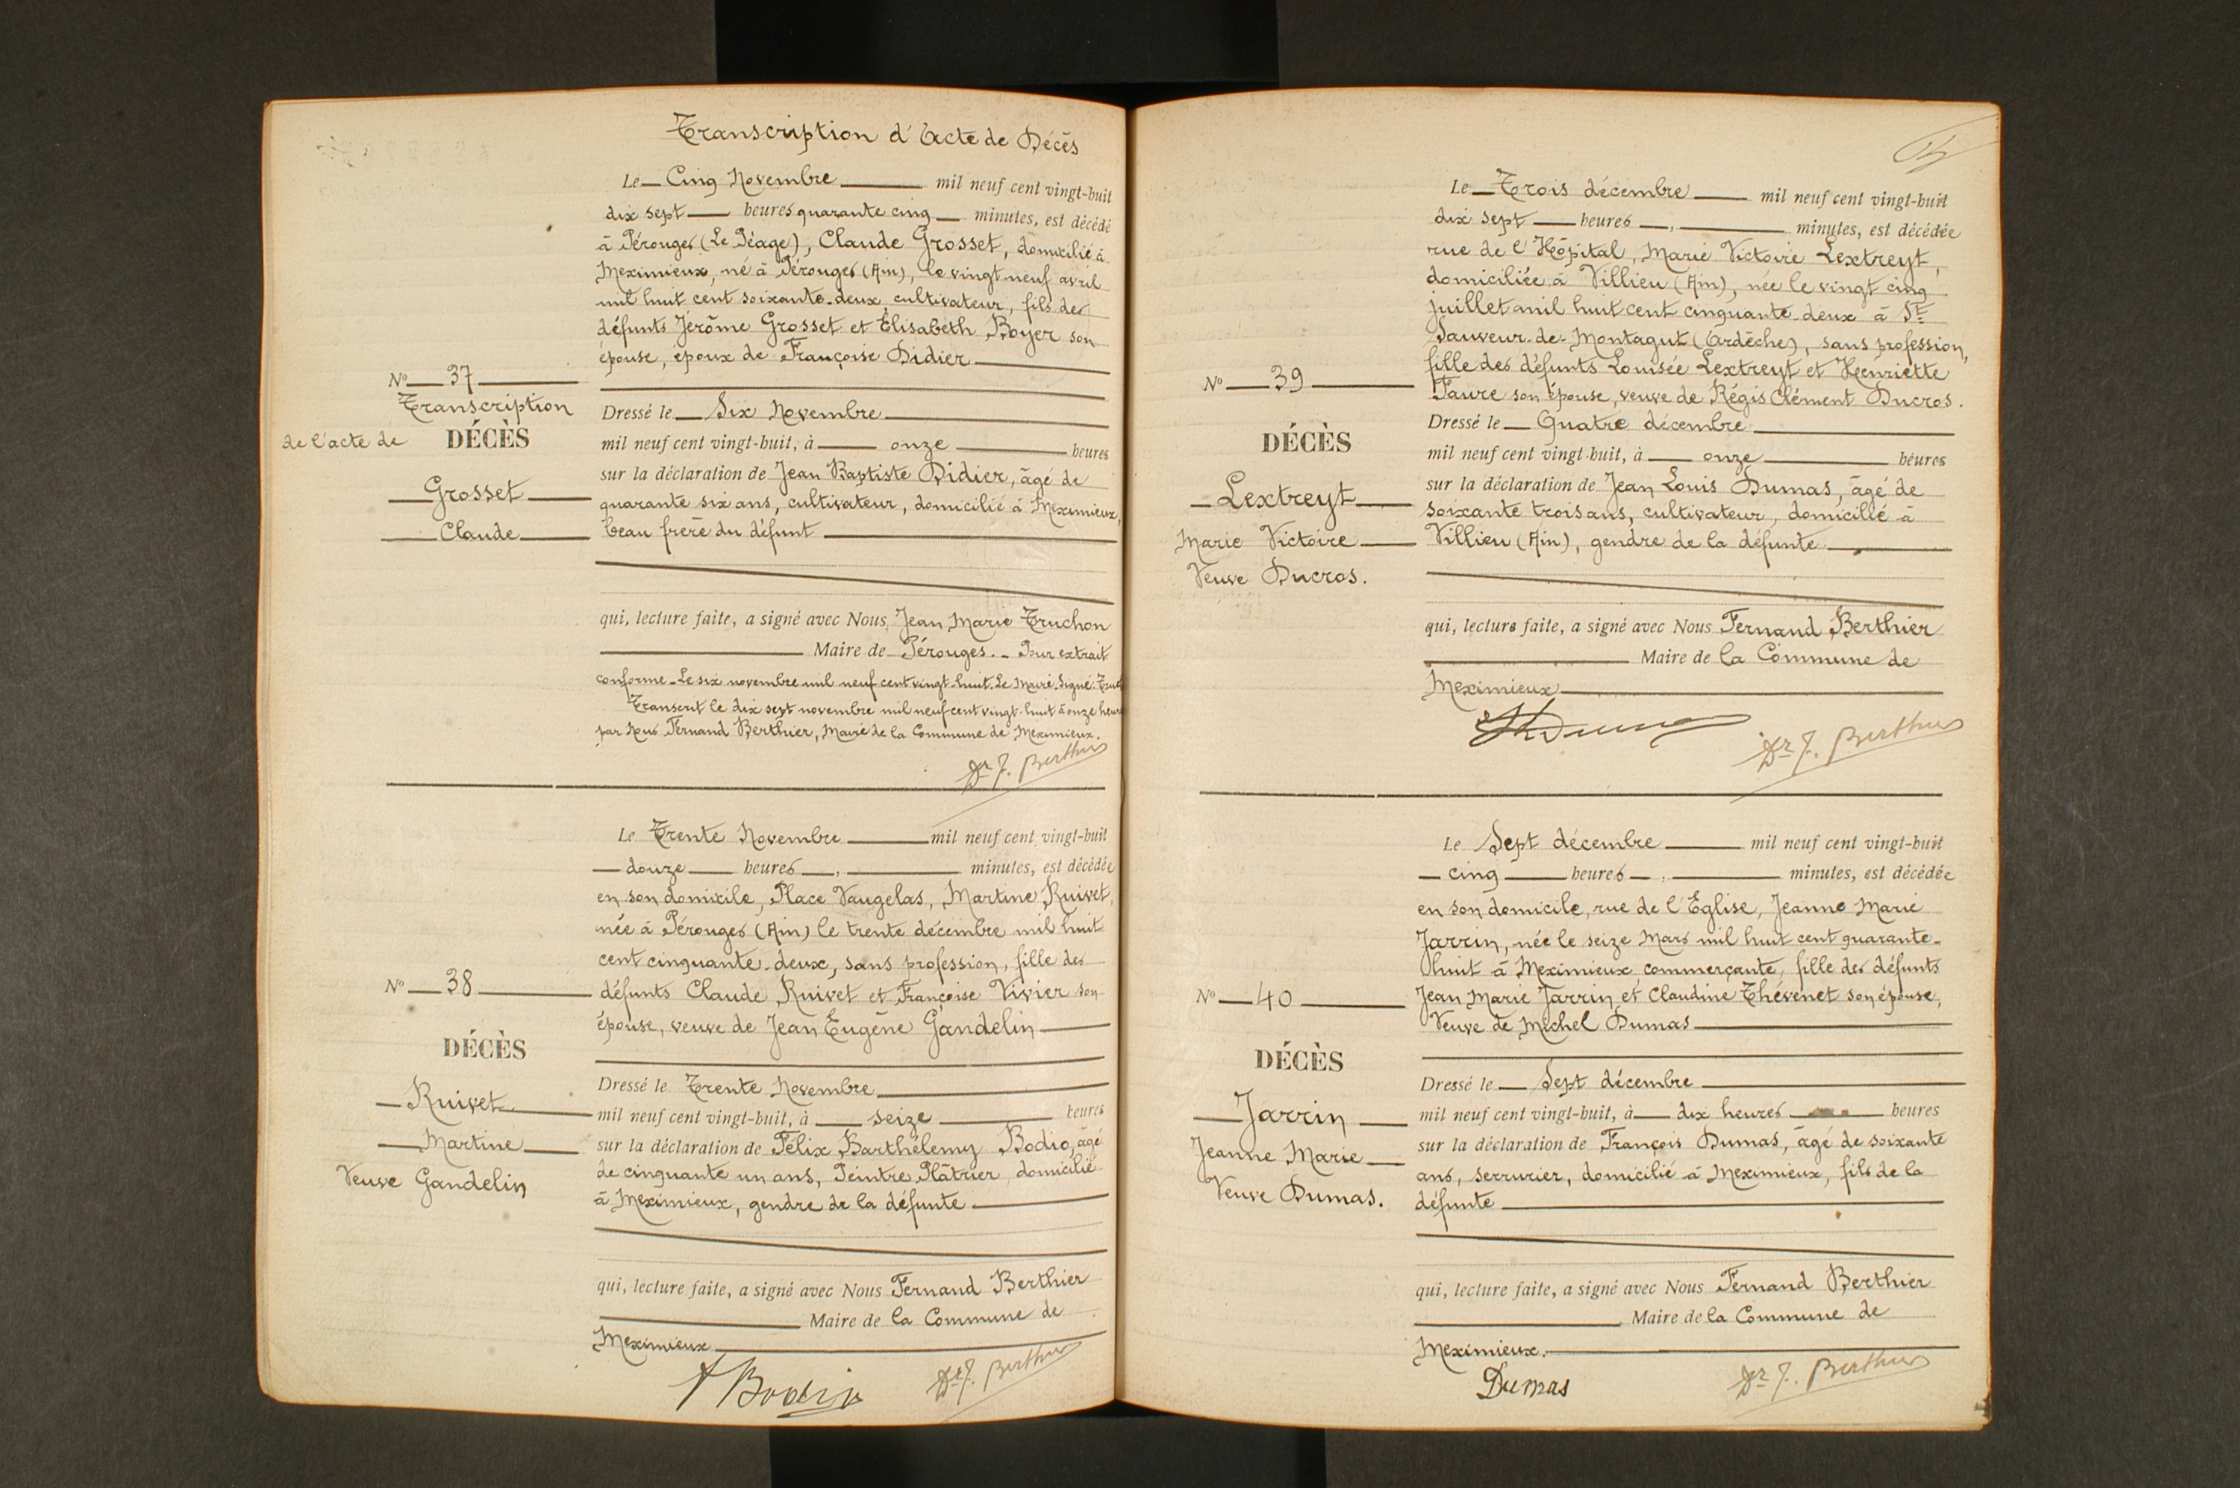 Transcription d'Acte de Décès
Le Cinq Novembre mil neuf cent vingt-huit
dix sept heures quarante cinq minutes, est décédé
à Pérouges (Le Péage), Claude Grosset, domicilié à
Meximieux, né à Pérouges (Ain), le vingt neuf avril
mil huit cent soixante-deux, cultivateur, fils des
défunts Jérôme Grosset et Élisabeth Boyer son
épouse, époux de Françoise Didier
No 37
Transcription
de l'acte de DÉCÈS
Grosset
Claude
Dressé le Six Novembre
mil neuf cent vingt-huit, à onze heures
sur la déclaration de Jean Baptiste Didier, âgé de
quarante six ans, cultivateur, domicilié à Meximieux,
beau frère du défunt
qui, lecture faite, a signé avec Nous Jean Marie Truchon
Maire de Pérouges. - Pour extrait
conforme - Le six novembre mil neuf cent vingt-huit. Le Maire. Signé:
Transcrit le dix sept novembre mil neuf cent vingt-huit à onze heures
par Nous Fernand Berthier, Maire de la Commune de Meximieux.
Dr F. Berthier
Le Trente Novembre mil neuf cent vingt-huit
douze heures, minutes, est décédée
en son domicile, Place Vaugelas, Martine Ruivet,
née à Pérouges (Ain) le trente décembre mil huit
cent cinquante-deux, sans profession, fille des
défunts Claude Ruivet et Françoise Vivier son
épouse, veuve de Jean Eugène Gandelin
No 38
DÉCÈS
Ruivet
Martine
Veuve Gandelin
Dressé le Trente Novembre
mil neuf cent vingt-huit, à seize heures
sur la déclaration de Félix Barthélemy Bodio, âgé
de cinquante un ans, Peintre Plâtrier, domicilié
à Meximieux, gendre de la défunte
qui, lecture faite, a signé avec Nous Fernand Berthier
Maire de la Commune de
Meximieux
F Bodio Dr F. Berthier
Le Trois décembre mil neuf cent vingt-huit
dix sept heures, minutes, est décédée
rue de l'Hôpital, Marie Victoire Lextreyt,
domiciliée à Villieu (Ain), née le vingt cinq
juillet mil huit cent cinquante-deux à St
Sauveur-de-Montagut (Ardèche), sans profession,
fille des défunts Louisée Lextreyt et Henriette
Faure son épouse, veuve de Régis Clément Ducros.
No 39
DÉCÈS
Lextreyt
Marie Victoire
Veuve Ducros.
Dressé le Quatre décembre
mil neuf cent vingt-huit, à onze heures
sur la déclaration de Jean Louis Dumas, âgé de
soixante trois ans, cultivateur, domicilié à
Villieu (Ain), gendre de la défunte
qui, lecture faite, a signé avec Nous Fernand Berthier
Maire de la Commune de
Meximieux
Dr F. Berthier
Le Sept décembre mil neuf cent vingt-huit
cinq heures, minutes, est décédée
en son domicile, rue de l'Eglise, Jeanne Marie
Jarrin, née le seize Mars mil huit cent quarante-
huit à Meximieux commerçante, fille des défunts
Jean Marie Jarrin et Claudine Thévenet son épouse,
Veuve de Michel Dumas
No 40
DÉCÈS
Jarrin
Jeanne Marie
Veuve Dumas.
Dressé le Sept décembre
mil neuf cent vingt-huit, à dix heures heures
sur la déclaration de François Dumas, âgé de soixante
ans, serrurier, domicilié à Meximieux, fils de la
défunte
qui, lecture faite, a signé avec Nous Fernand Berthier
Maire de la Commune de
Meximieux.
Dumas Dr F. Berthier